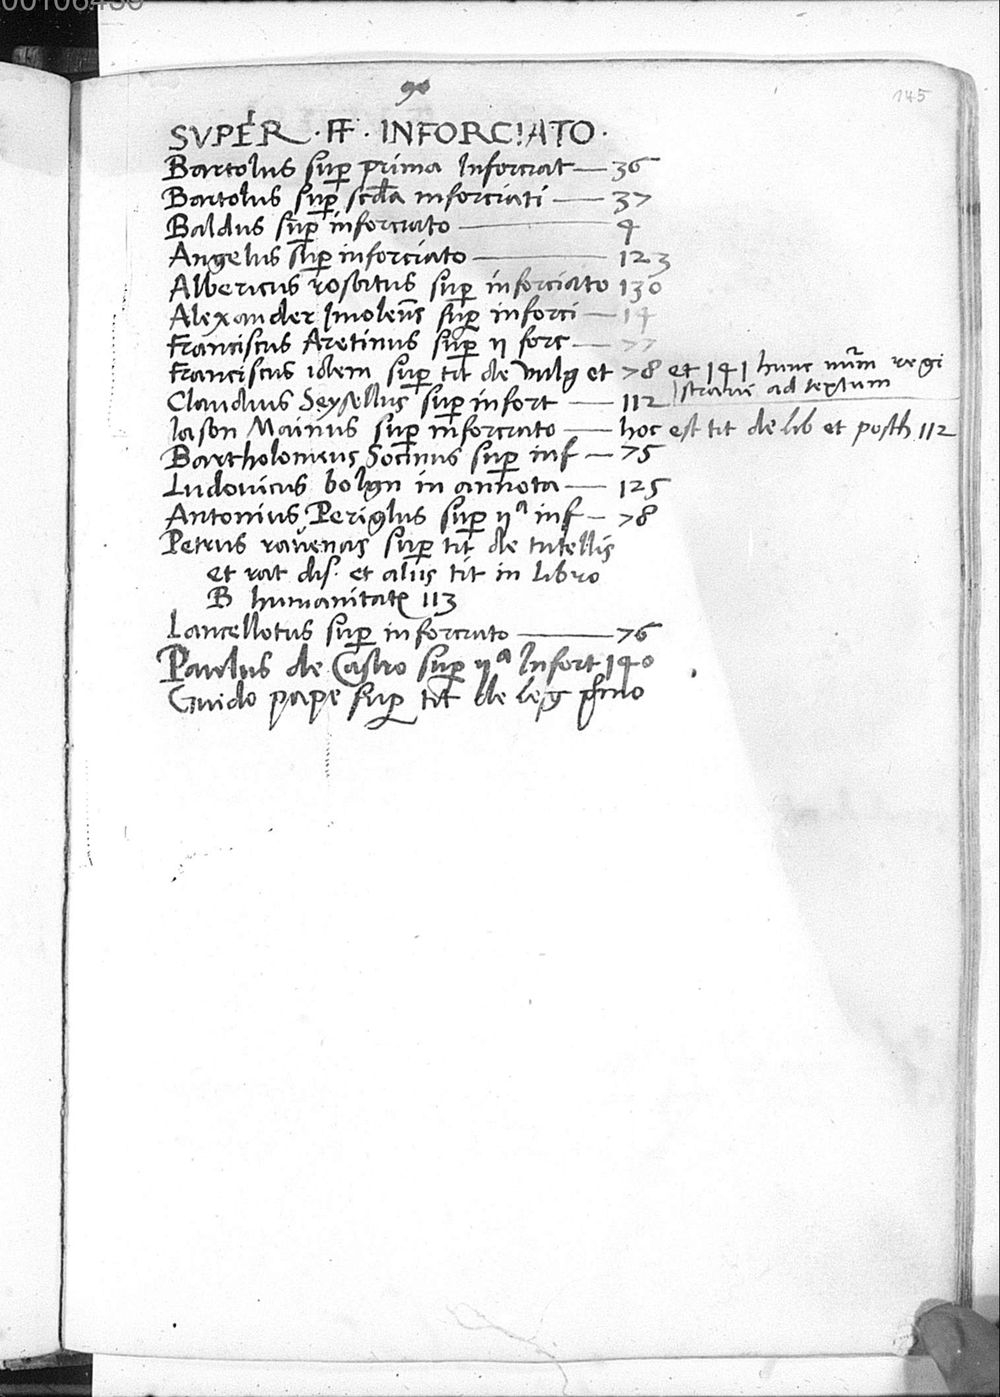 00106436
90
145
SVPER · FF · INFORCIATO ·
Bartolus sup prima Inforciat — 36
Bartolus sup scda inforciati — 37
Baldus sup inforciato — 4
Angelus sup inforciato — 123
Albericus rosatus sup inforciato 130
Alexander Imolens sup inforci — 14
Franciscus Aretinus sup ij forc — 77
Franciscus idem sup tit de vulg et 78 et 141 hunc num regi
straui ad textum
Claudius Seysellus sup infort — 112
Iason Mainus sup inforciato — hoc est tit de lib et posth 112
Bartholomeus Socinus sup inf — 75
Ludouicus bolgn in annota — 125
Antonius Periglus sup ij a inf — 78
Petrus rauenas sup tit de tutellis
et rat dis. et alijs tit in Libro
B humanitatz 113
Lancellotus sup inforciato — 76
Paulus de Castro sup ij a Infort 140
Guido pape sup tit de leg pmo